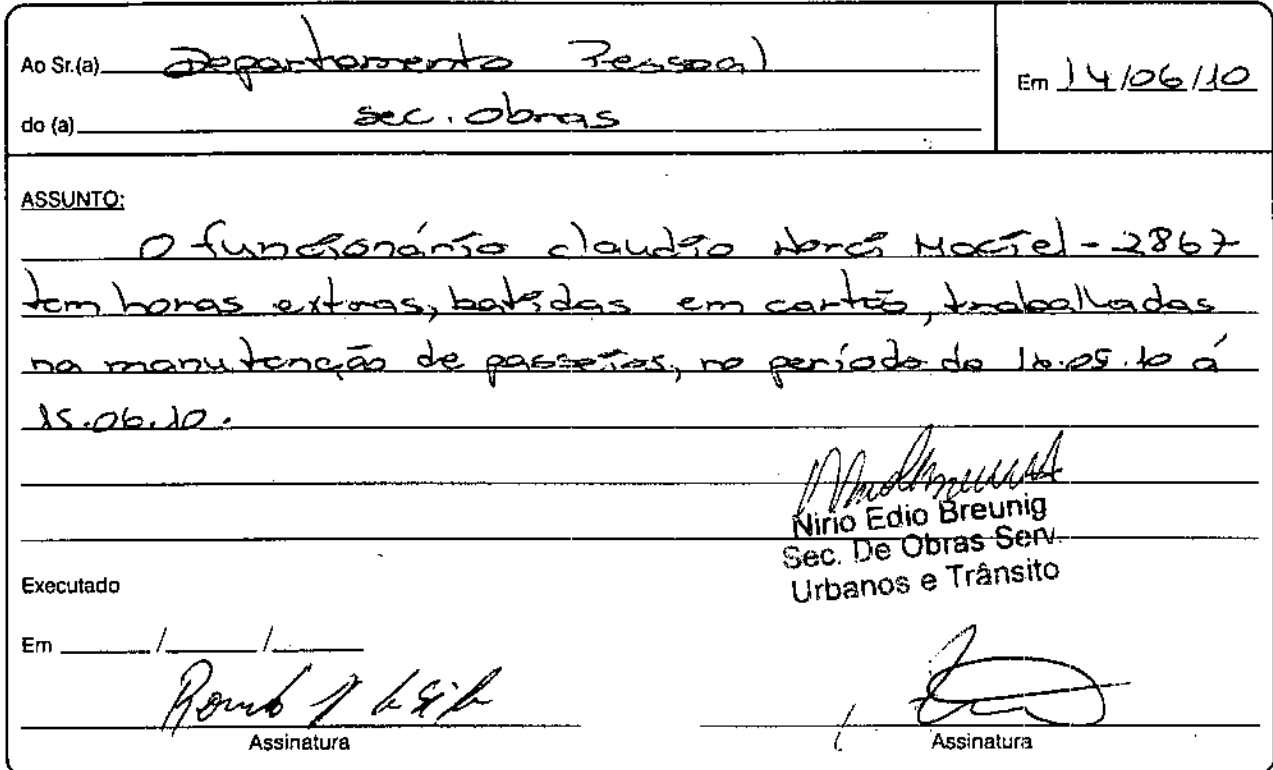 Ao Sr.(a) Departamento Pessoal
Em 14/06/10
do (a) sec. obras
ASSUNTO:
O funcionário claudio Maciel - 2867
tem horas extras, batidas em cartão, trabalhadas
na manutenção de passeios, no período de 16.05.10 á
15.06.10.
Nirio Edio Breunig
Sec. De Obras Serv.
Urbanos e Trânsito
Executado
Em / /
Assinatura
Assinatura